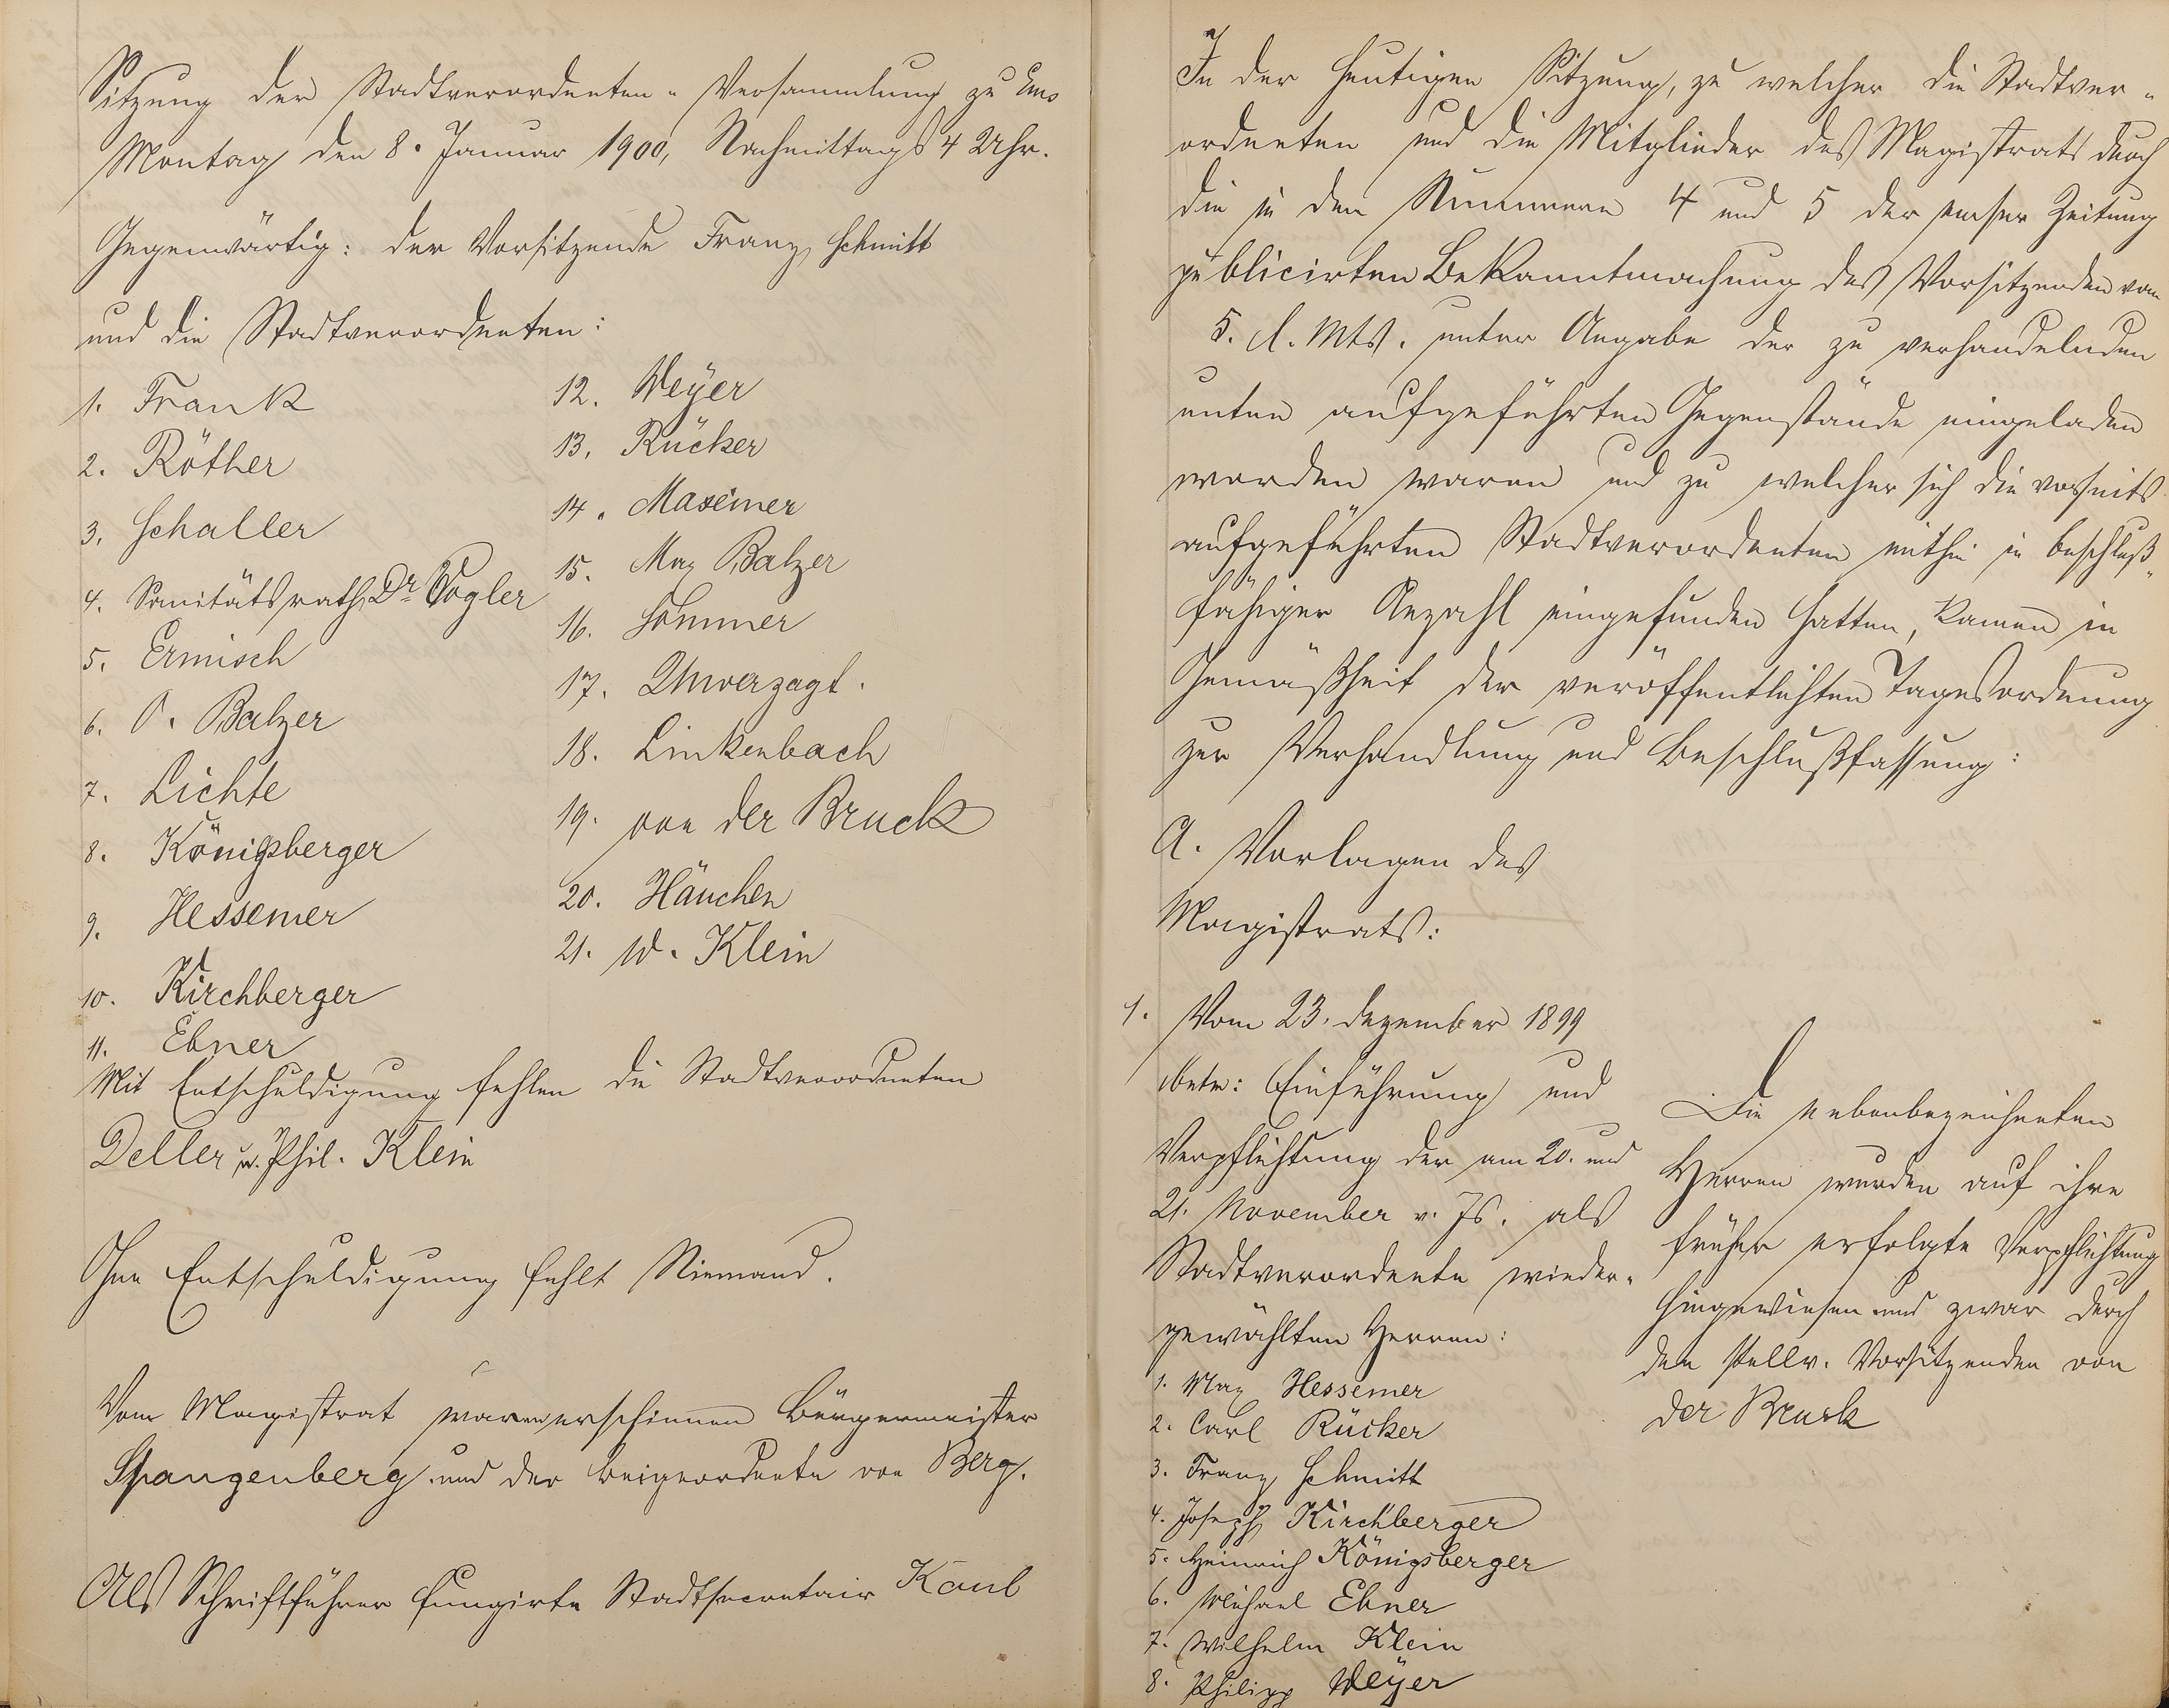 Sitzung der Stadtverordneten-Versammlung zu Ems
Montag den 8. Januar 1900, Nachmittags 4 Uhr.
Gegenwärtig: der Vorsitzende Franz Schmitt
und die Stadtverordneten:
1. Frank
2. Röther
3. Schaller
4. Sanitätsrath Dr. Vogler
5. Ermisch
6. O. Balzer
7. Lichte
8. Königsberger
9. Hessemer
10. Kirchberger
11. Ebner
12. Weyer
13. Rücker
14. Maxeiner
15. Max Balzer
16. Sommer
17. Unverzagt.
18. Linkenbach
19. von der Bruck
20. Häuchen
21. W. Klein
Mit Entschuldigung fehlen die Stadtverordneten
Deller u. Phil. Klein
Ohne Entschuldigung fehlt Niemand.
Vom Magistrat waren erschienen Bürgermeister
Spangenberg und der Beigeordnete von Berg.
Als Schriftführer fungirte Stadtsecretair Kaul
In der heutigen Sitzung, zu welcher die Stadtver-
ordneten und die Mitglieder des Magistrats durch
die in den Nummern 4 und 5 der Emser Zeitung
publicirten Bekanntmachung des Vorsitzenden vom
5. d. Mts. unter Angabe der zu verhandelnden
unten aufgeführten Gegenstände eingeladen
worden waren und zu welcher sich die vorseits
aufgeführten Stadtverordneten mithin in beschluß-
fähiger Anzahl eingefunden hatten, kamen in
Gemäßheit der veröffentlichten Tagesordnung
zur Verhandlung und Beschlußfassung:
A. Vorlagen des
Magistrats:
1. Vom 23. Dezember 1899
betr: Einführung und
Verpflichtung der am 20. und
21. November v. Js. als
Stadtverordnete wieder-
gewählten Herren:
1. Max Hessemer
2. Carl Rücker
3. Franz Schmitt
4. Joseph Kirchberger
5. Heinrich Königsberger
6. Michael Ebner
7. Wilhelm Klein
8. Philipp Weyer
Die nebenbezeichneten
Herren wurden auf ihre
früher erfolgte Verpflichtung
hingewiesen und zwar durch
den stellv. Vorsitzenden von
der Bruck